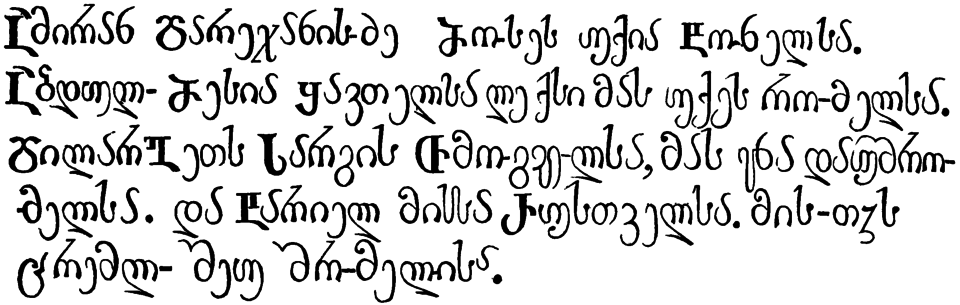 ამირან დარეჯანის-ძე მო-სეს უქია ხო-ნელსა.
აბდულ- მესია შავთელსა ლექსი მას უქეს რო-მელსა.
დილარგეთს სარგის თმო-გველსა, მას ენა დაუშრო-
მელსა. და ტარიელ მისსა რუსთველსა. მის-თჳს
ცრემლ- შეუ შრ-მელისა.